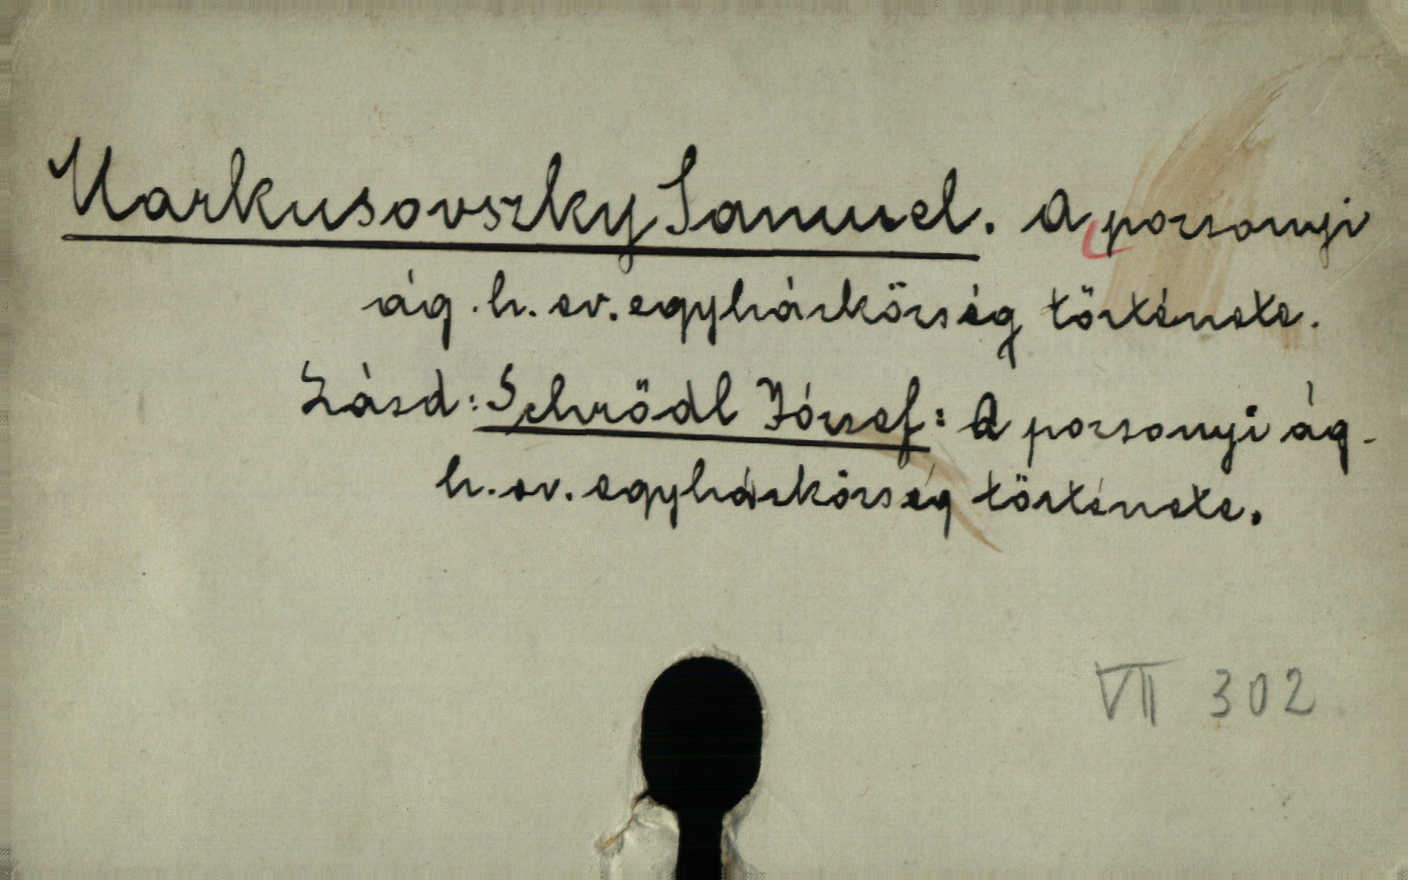 Markusovszky Samuel. A pozsonyi
ág. h. ev. egyházközség története.
Lásd: Schrödl József: A pozsonyi ág.
h. ev. egyházközség története.
VII 302